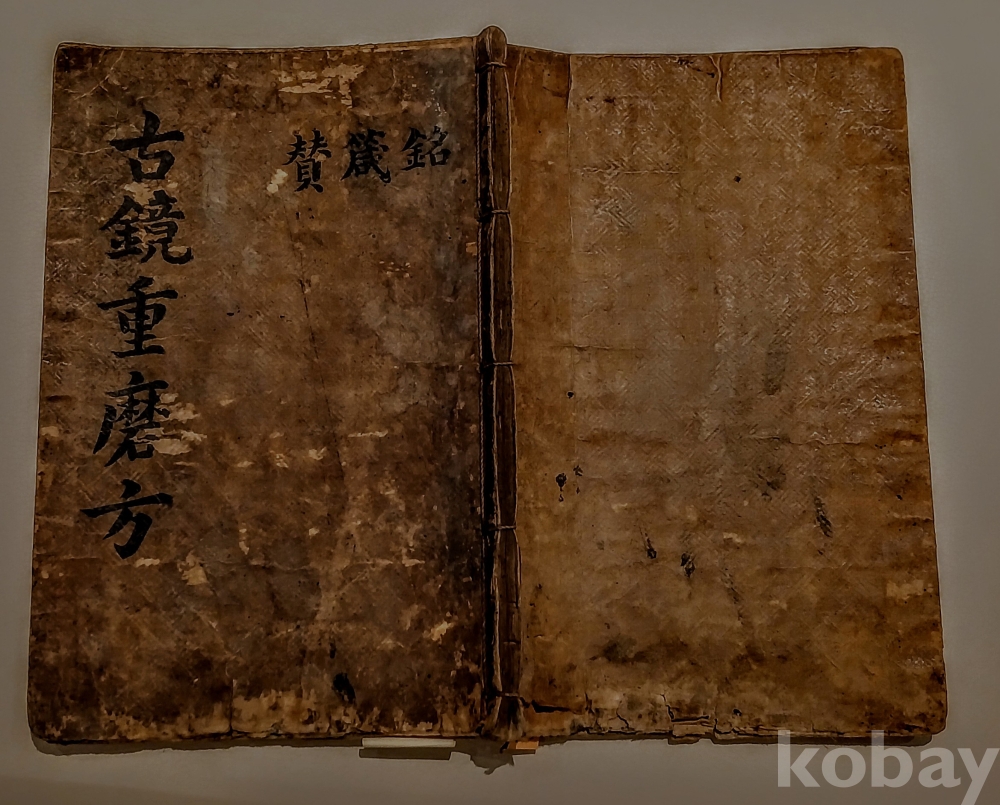 古鏡重磨方
銘箴賛
kobay